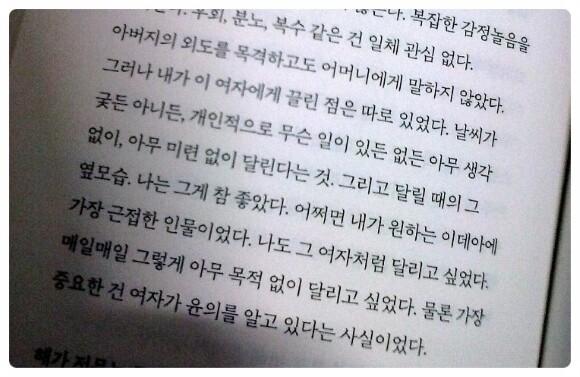 않는다. 복잡한 감정놀음을
후회, 분노, 복수 같은 건 일체 관심 없다.
아버지의 외도를 목격하고도 어머니에게 말하지 않았다.
그러나 내가 이 여자에게 끌린 점은 따로 있었다. 날씨가
궂든 아니든, 개인적으로 무슨 일이 있든 없든 아무 생각
없이, 아무 미련 없이 달린다는 것. 그리고 달릴 때의 그
옆모습. 나는 그게 참 좋았다. 어쩌면 내가 원하는 이데아에
가장 근접한 인물이었다. 나도 그 여자처럼 달리고 싶었다.
매일매일 그렇게 아무 목적 없이 달리고 싶었다. 물론 가장
중요한 건 여자가 윤의를 알고 있다는 사실이었다.
해가